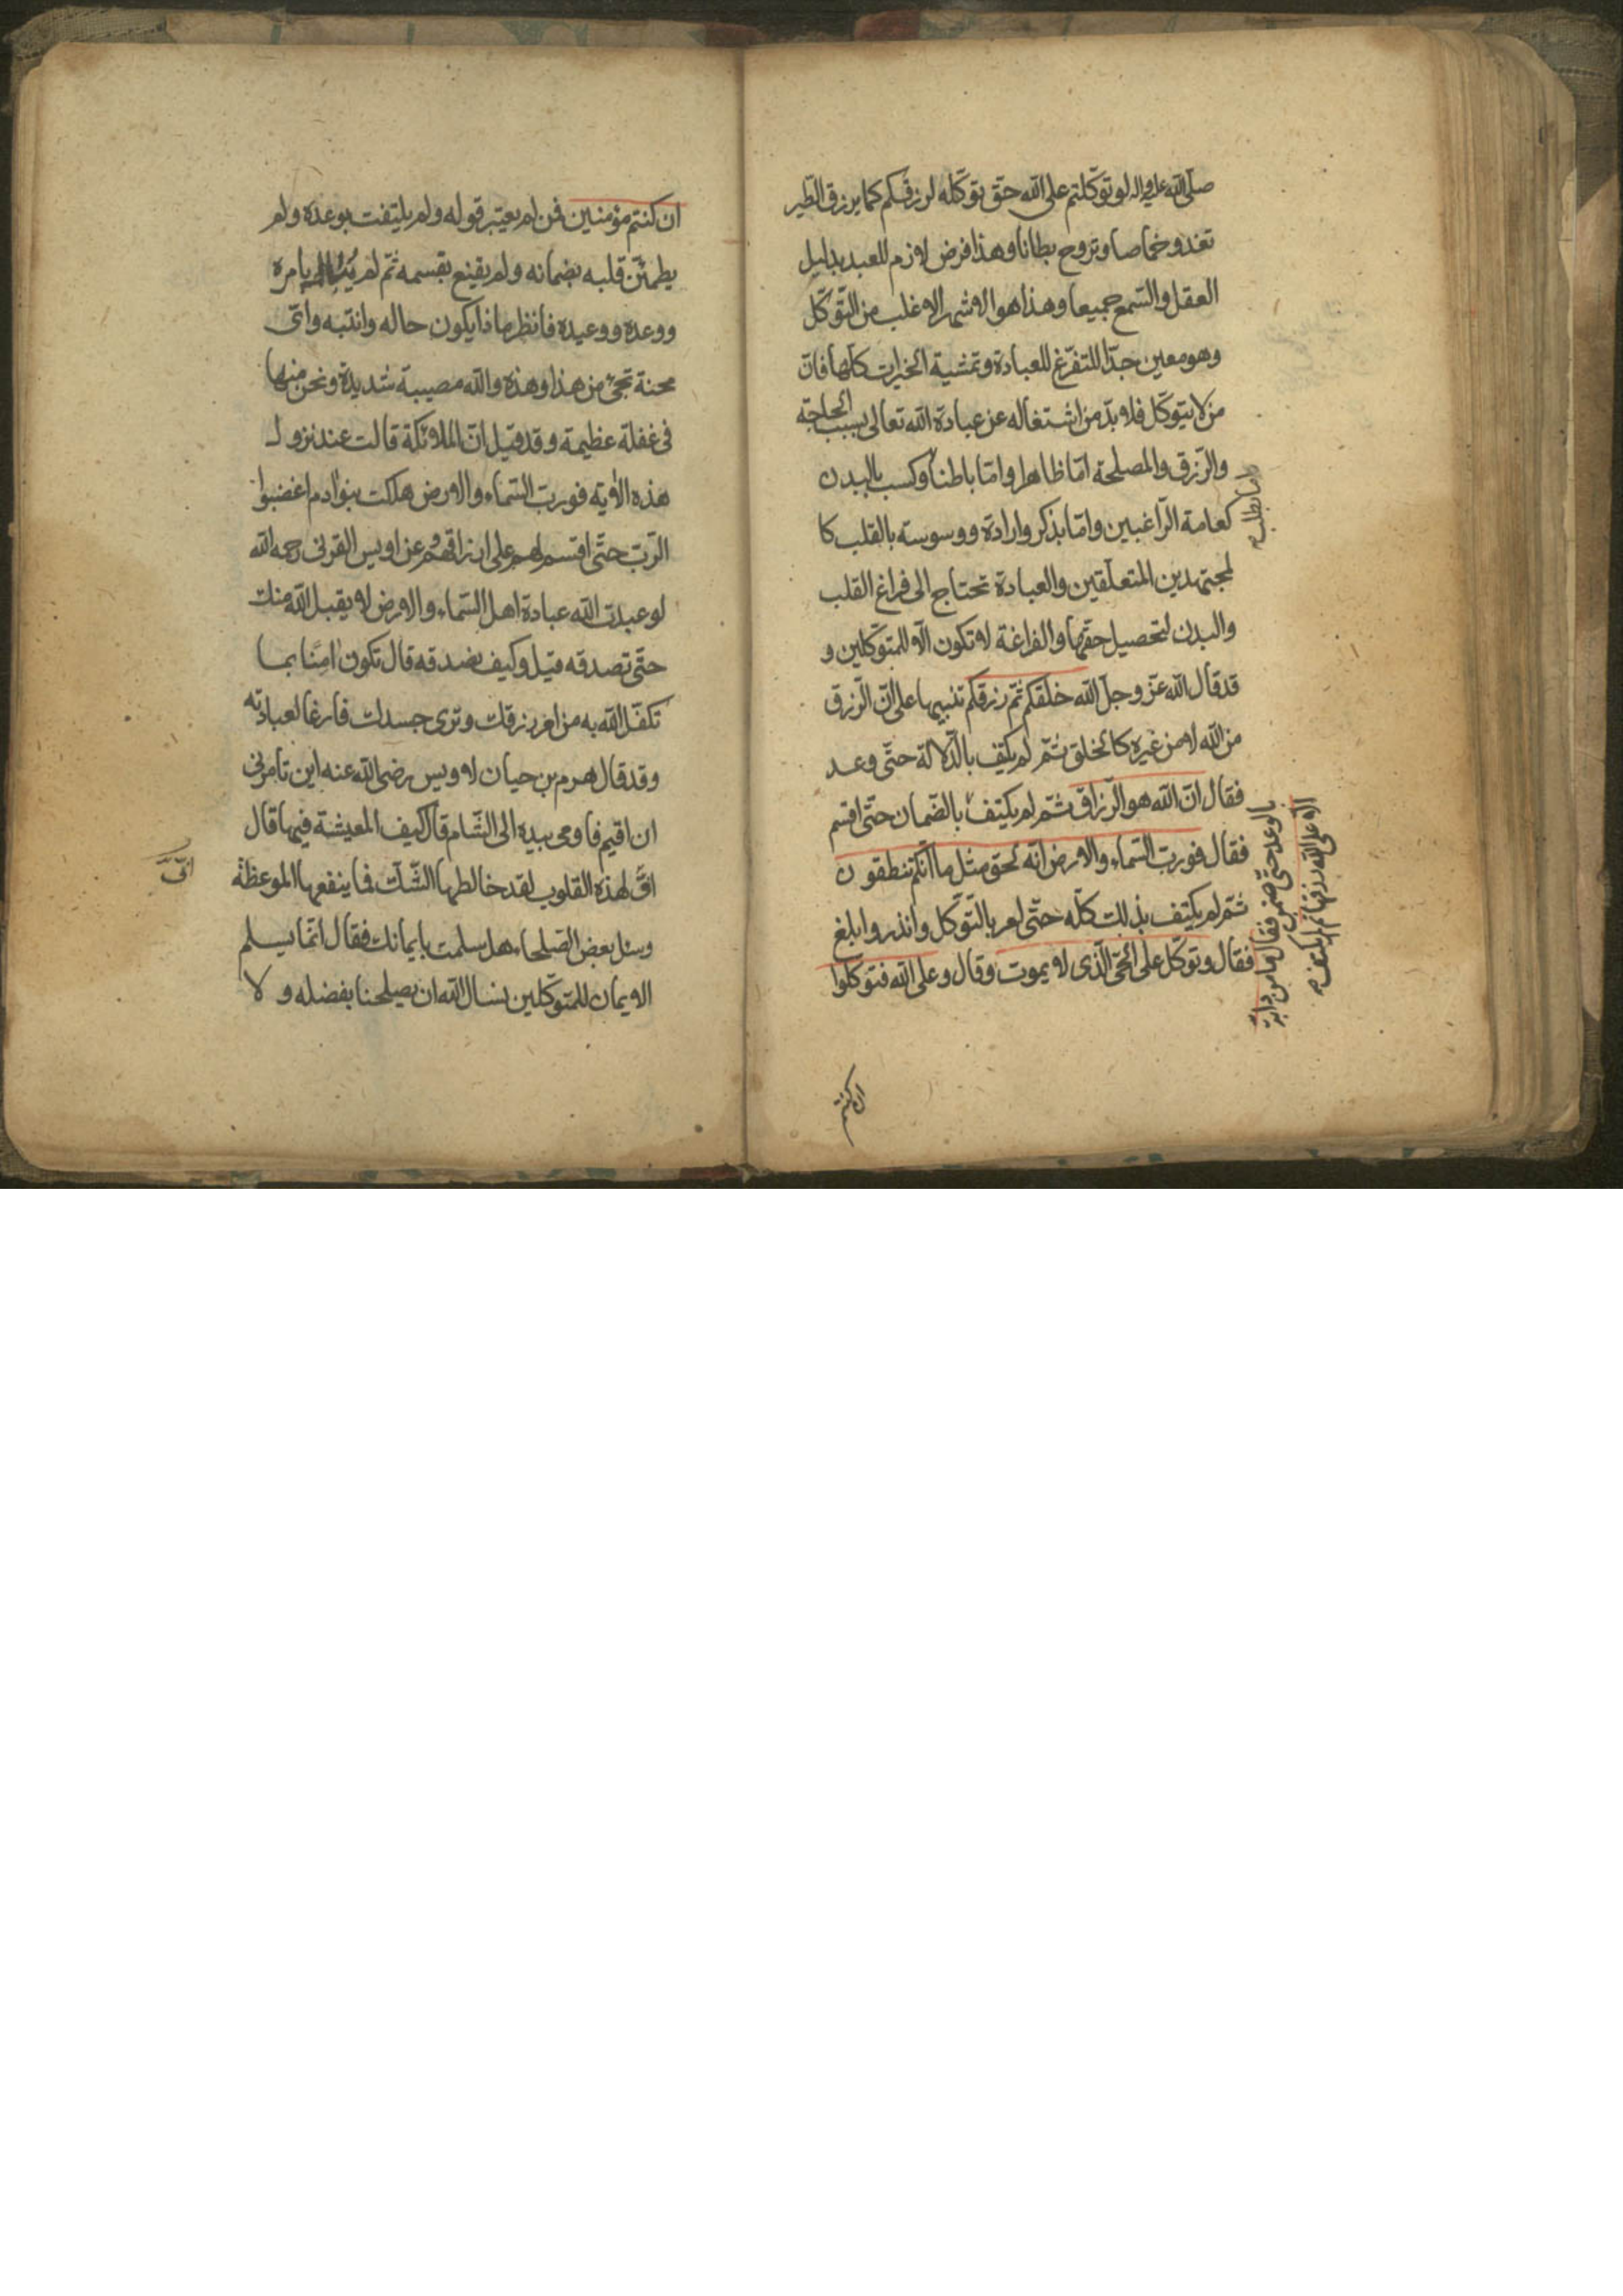 صلّى الله عليه واله لو توكّلتم على الله حقّ توكّله لرزقكم كما يرزق الطّير
تغدو خماصا وتروح بطانا وهذا فرض لازم للعبد بدليل
العقل والسّمع جميعا وهذا هو الاشهر الاغلب من التّوكّل
وهو معين جدّا للتفرّغ للعبادة وتمشية الخيرات كلّها فانّ
من لا يتوكّل فلا بدّ من اشتغاله عن عبادة الله تعالى بسبب الحاجة
والرّزق والمصلحة امّا ظاهرا وامّا باطنا وكسب بالبدن
كعامة الرّاغبين وامّا بذكر وارادة ووسوسة بالقلب كا
لمجتهدين المتعلّقين والعبادة تحتاج الى فراغ القلب
والبدن لتحصيل حقّها والفراغة لا تكون الّا للمتوكّلين و
قد قال الله عزّ وجلّ الله خلقكم ثمّ رزقكم تنبيها على انّ الرّزق
من الله لا من غيره كالخلق ثمّ لم يكتف بالدّلالة حتّى وعد
فقال انّ الله هو الرّزاق ثمّ لم يكتف بالضّمان حتّى اقسم
فقال فوربّ السّماء والارض انّه لحق مثل ما انّكم تنطقون
ثمّ لم يكتف بذلك كلّه حتّى امر بالتّوكّل وانذر وابلغ
فقال وتوكّل على الحىّ الّذى لا يموت وقال وعلى الله فتوكّلوا
امّا بطلب
بالوعد حتّى ضمن فقال وما من دابّة
الّا على الله رزقها ثم لم يكتف
ان كنتم
ان كنتم مؤمنين فمن لم يعتبر قوله ولم يلتفت بوعده ولم
يطمئنّ قلبه بضمانه ولم يقنع بقسمه ثمّ لم بامره
ووعده ووعيده فانظر ماذا يكون حاله وانتبه واتى
محنة تجئ من هذا وهذه والله مصيبة شديدة ونحن منها
فى غفلة عظيمة وقد قيل انّ الملائكة قالت عند نزول
هذه الاية فوربّ السّماء والارض هلكت بنوا ادم اغضبوا
الرّبّ حتّى اقسم لهم على ارزاقهم وعن اويس القرنى رحمه الله
لو عبدت الله عبادة اهل السّماء والارض لا يقبل الله منك
حتّى تصدقه قيل وكيف نصدقه قال تكون امنا بما
تكفّل الله به من امر رزقك وترى جسدك فارغا لعبادته
وقد قال هرم بن حيان لاويس رضى الله عنه اين تامرنى
ان اقيم فاومى بيده الى الشّام قال كيف المعيشة فيها قال
افّ لهذه القلوب لقد خالطها الشّكّ فما ينفعها الموعظة
وسئل بعض الصّلحاء هل سلمت بايمانك فقال انّما يسلم
الايمان للمتوكّلين نسال الله ان يصلحنا بفضله ولا
افّ